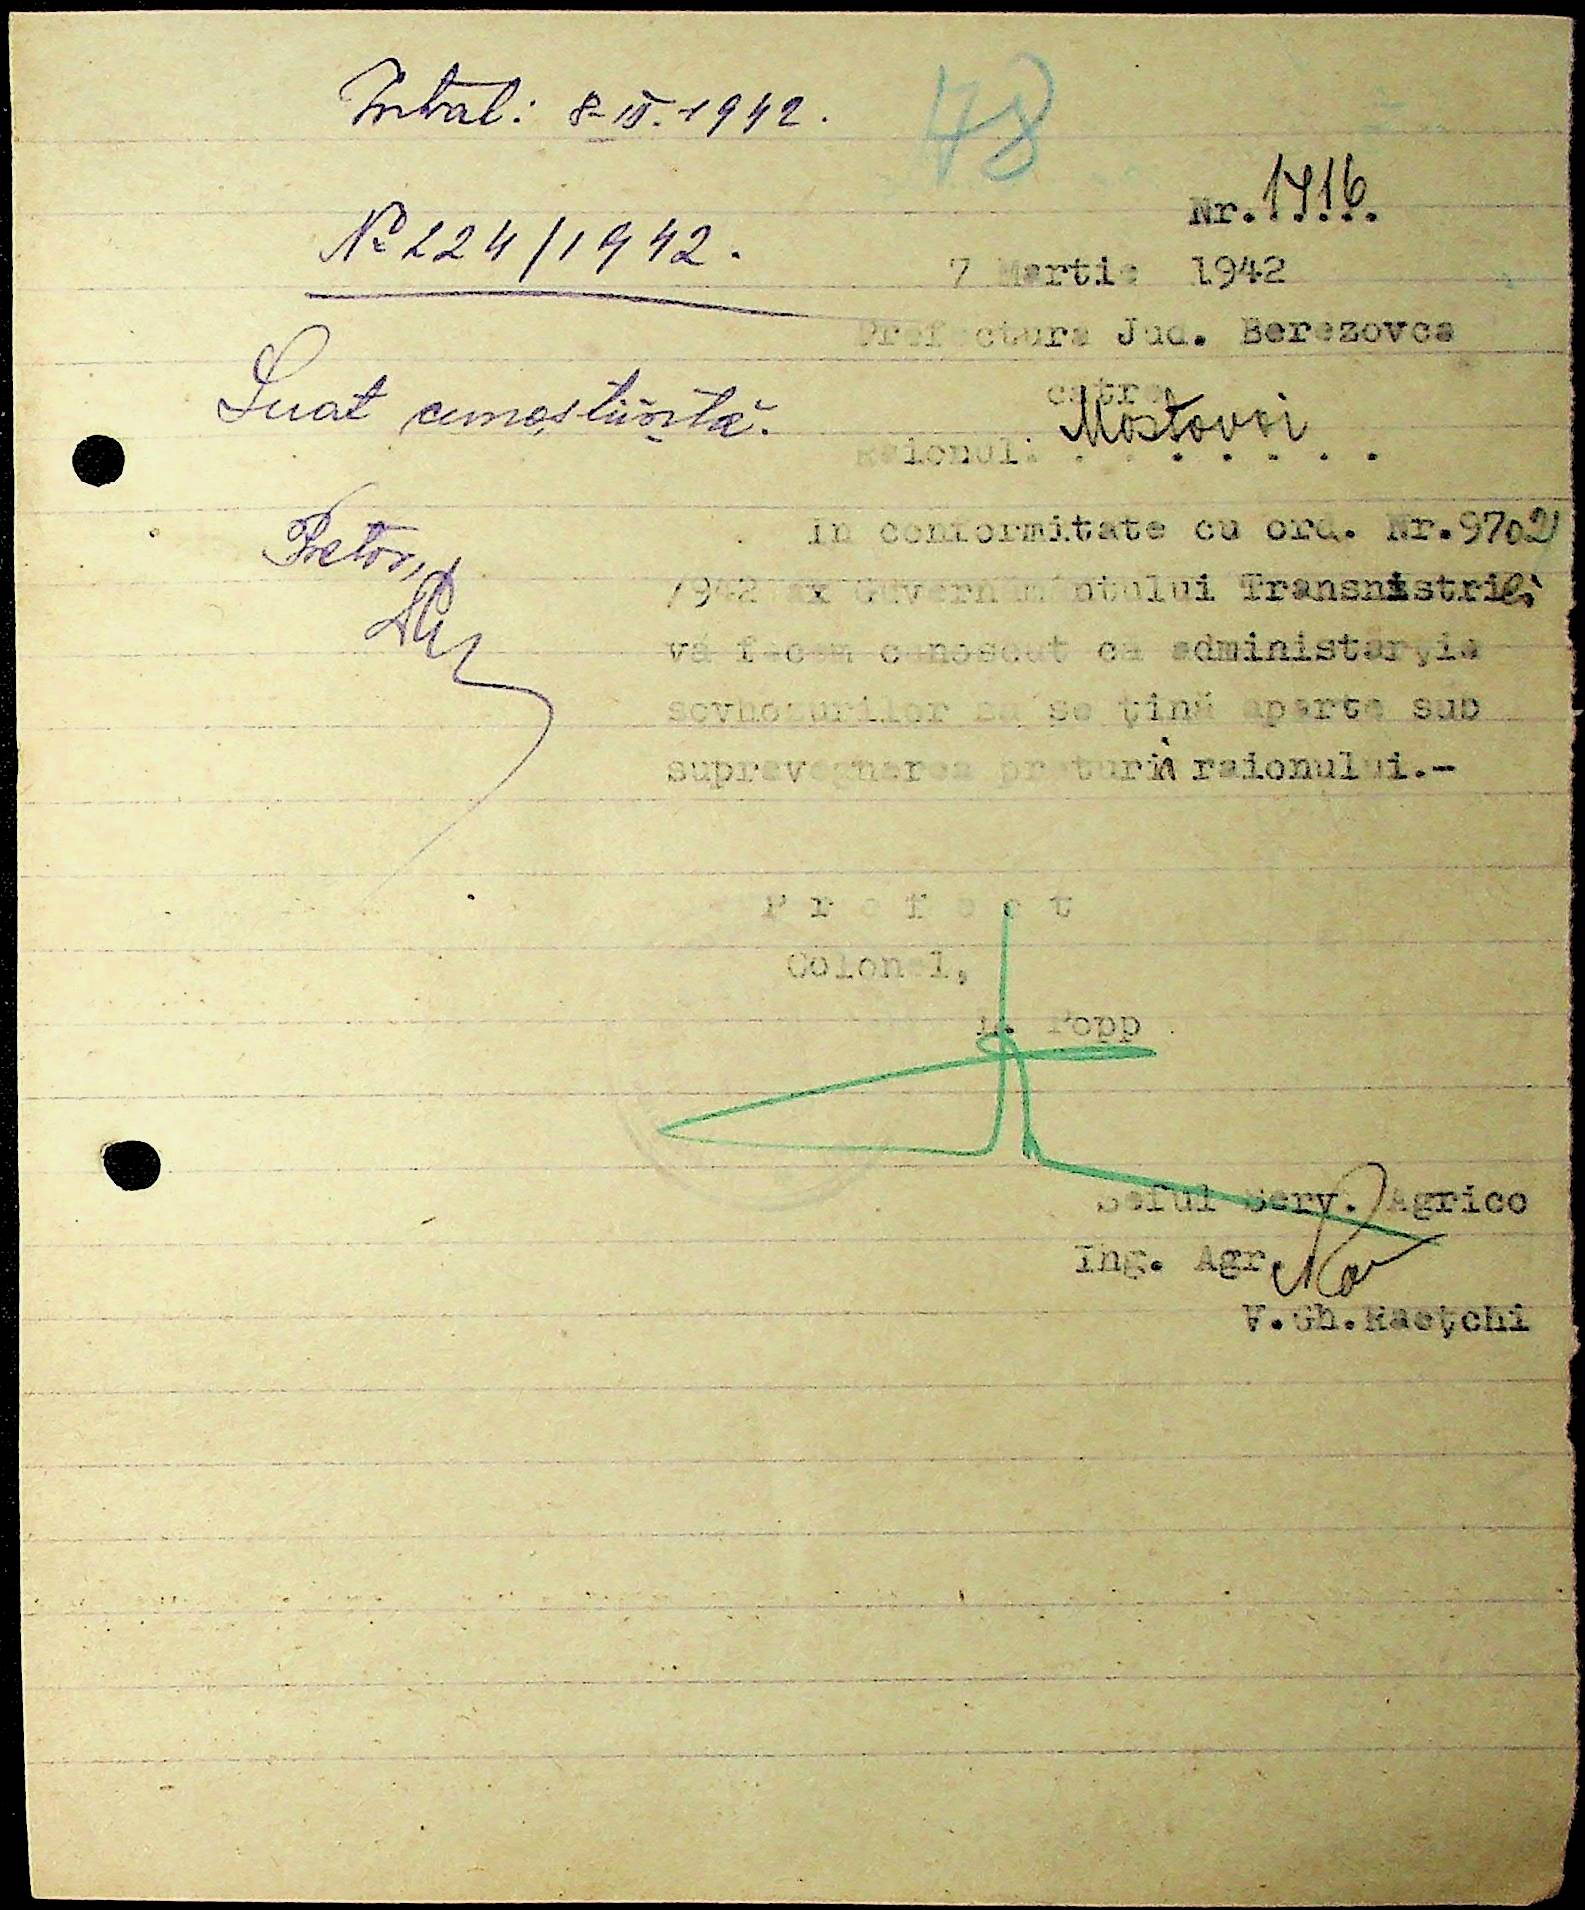 Intrat: 8-III.1942.
48
No 224/1942.
Nr.1716.
7 Martie 1942
Prefectura Jud. Berezovca
catre
Luat cunoștiință.
Raionul: Mostovoi
Pretor,
In conformitate cu ord. Nr.9702
/942 ax Guvernământului Transnistriei
vă facem cunoscut că administarția
sovhozurilor să se țină aparte sub
supravegherea preturii raionului.-
Prefect
Colonel,
Popp
Seful Serv. Agrico
Ing. Agr.
V.Gh.Raețchi